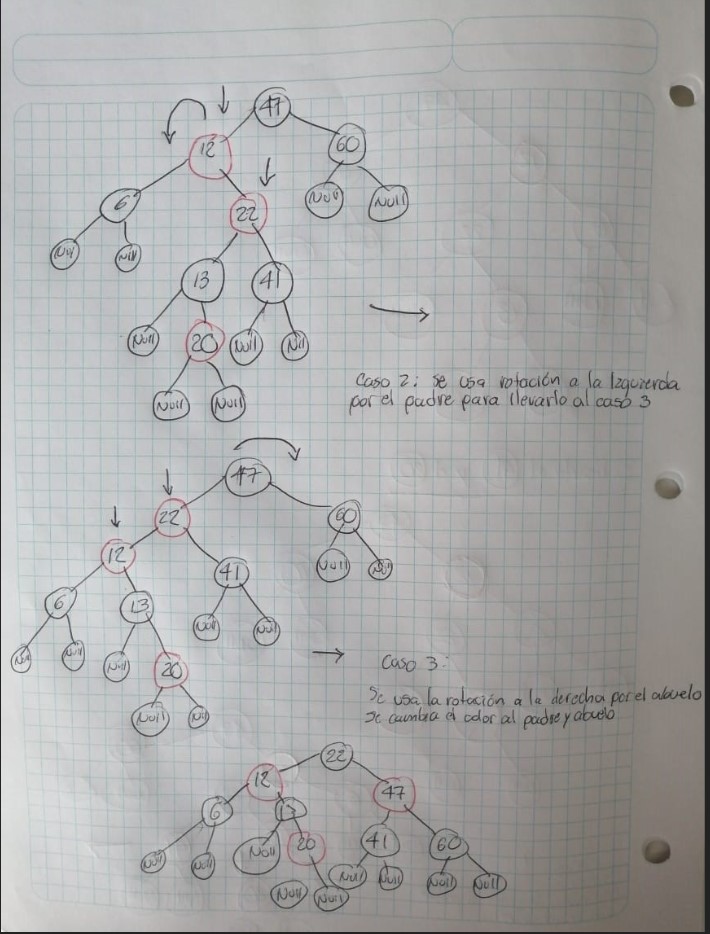 47
12
60
6
22
Null
Null
Null
Null
13
41
Null
20
Null
Null
Null
Null
Caso 2: se usa rotación a la Izquierda
por el padre para llevarlo al caso 3
47
22
60
12
41
Null
Null
6
13
Null
Null
Null
Null
Null
20
Null
Null
Caso 3:
Se usa la rotación a la derecha por el abuelo
Se cambia el color al padre y abuelo
22
12
47
6
13
41
60
Null
Null
Null
20
Null
Null
Null
Null
Null
Null